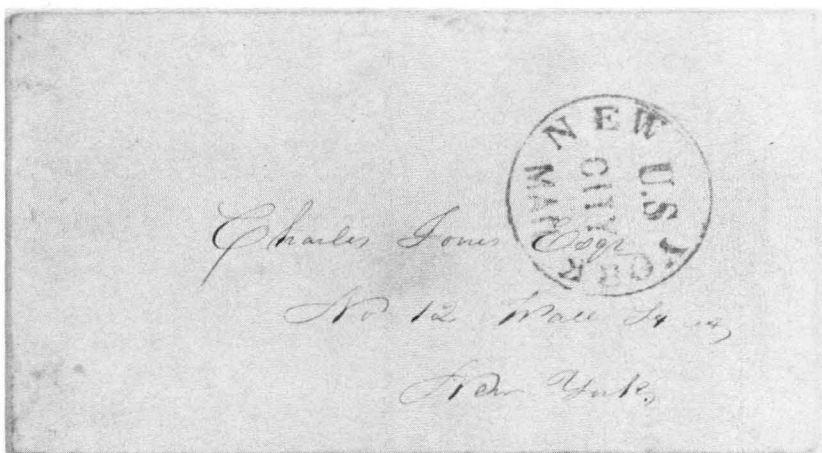 NEW YORK
U.S
CITY
MAIL
Charles Jones Esqr
No 12 Wall St
New York,